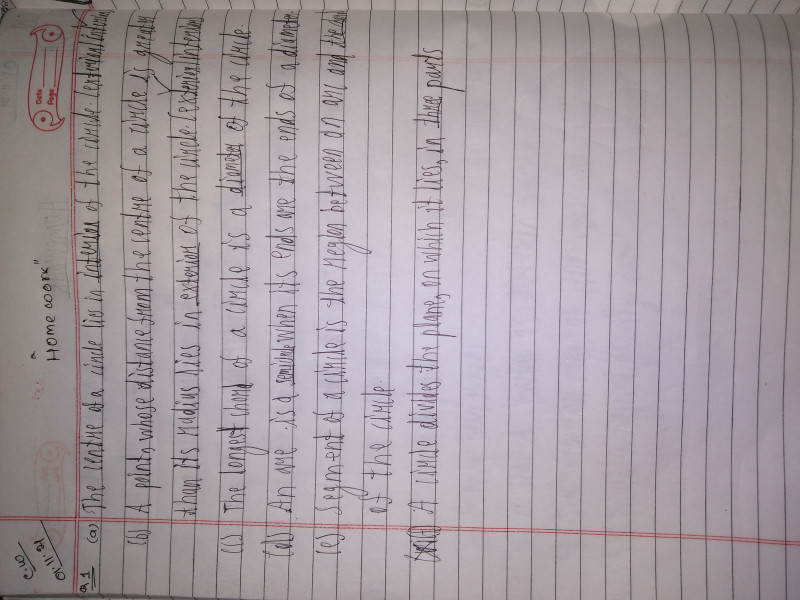 C.W
01.11.21
"Home work"
Date
Page
Q.1 (a) The centre of a circle lies in interior of the circle (exterior/interior
(b) A point, whose distance from the centre of a circle is greater
than its radius lies in exterior of the circle (exterior/interior
(c) The longest chord of a circle is a diameter of the circle.
(d) An arc is a semicircle when its ends are the ends of a diameter
(e) Segment of a circle is the region between an arc and
of the circle.
(f) A circle divides the plane, on which it lies, in three parts